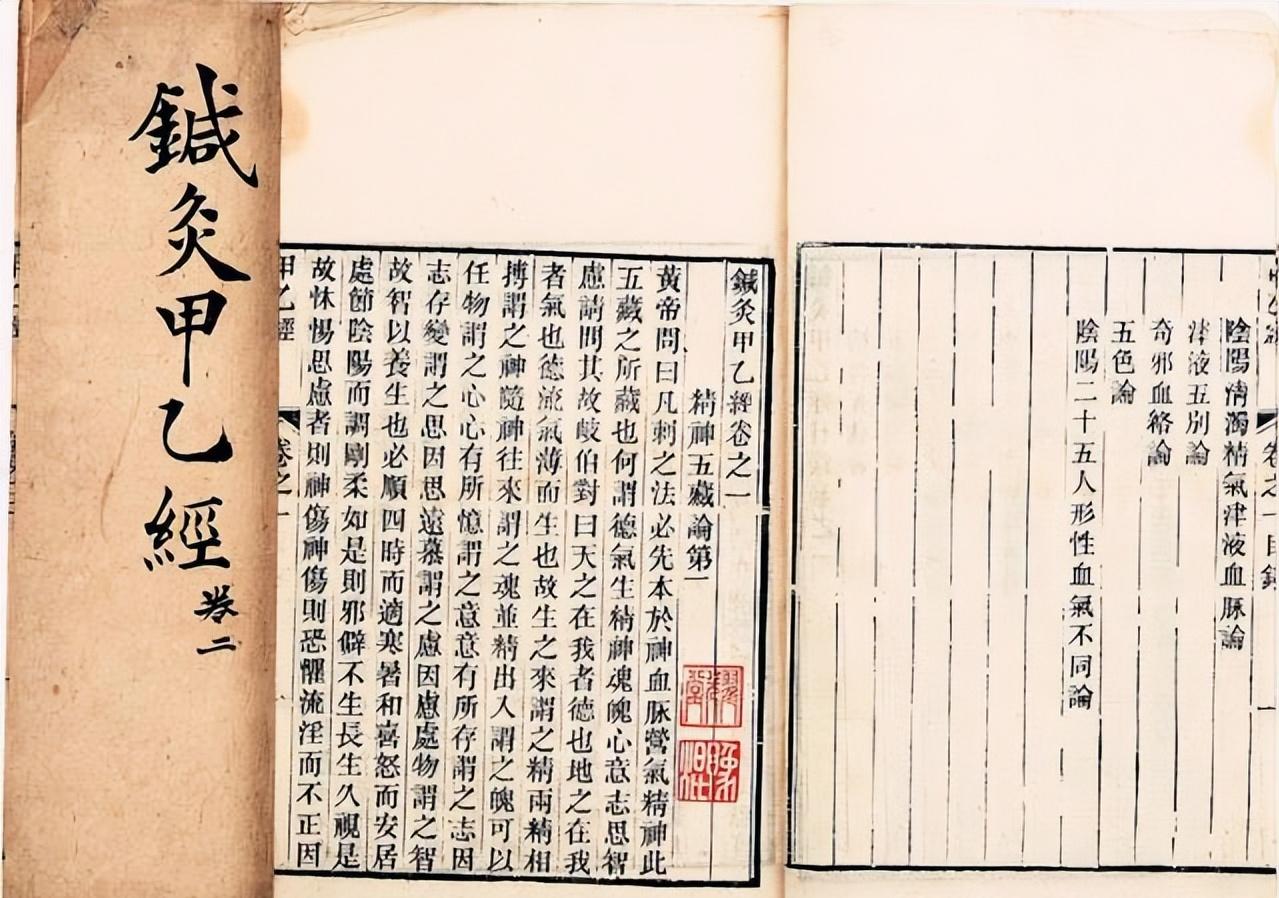 鍼灸甲乙經
卷二
卷之一目錄
一
陰陽清濁精氣津液血脈論
津液五別論
奇邪血絡論
五色論
陰陽二十五人形性血氣不同論
鍼灸甲乙經卷之一
精神五藏論第一
黃帝問曰凡刺之法必先本於神血脈營氣精神此
五藏之所藏也何謂德氣生精神魂魄心意志思智
慮請問其故岐伯對曰天之在我者德也地之在我
者氣也德流氣薄而生也故生之來謂之精兩精相
搏謂之神隨神往來謂之魂並精出入謂之魄可以
任物謂之心心有所憶謂之意意有所存謂之志因
志存變謂之思因思遠慕謂之慮因慮處物謂之智
故智以養生也必順四時而適寒暑和喜怒而安居
處節陰陽而調剛柔如是則邪僻不生長生久視是
故怵惕思慮者則神傷神傷則恐懼流淫而不正因
甲乙經
卷之一